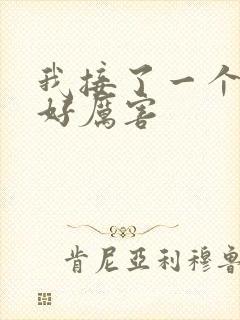 我接了一个
好厲害
肯尼亞利穆魯